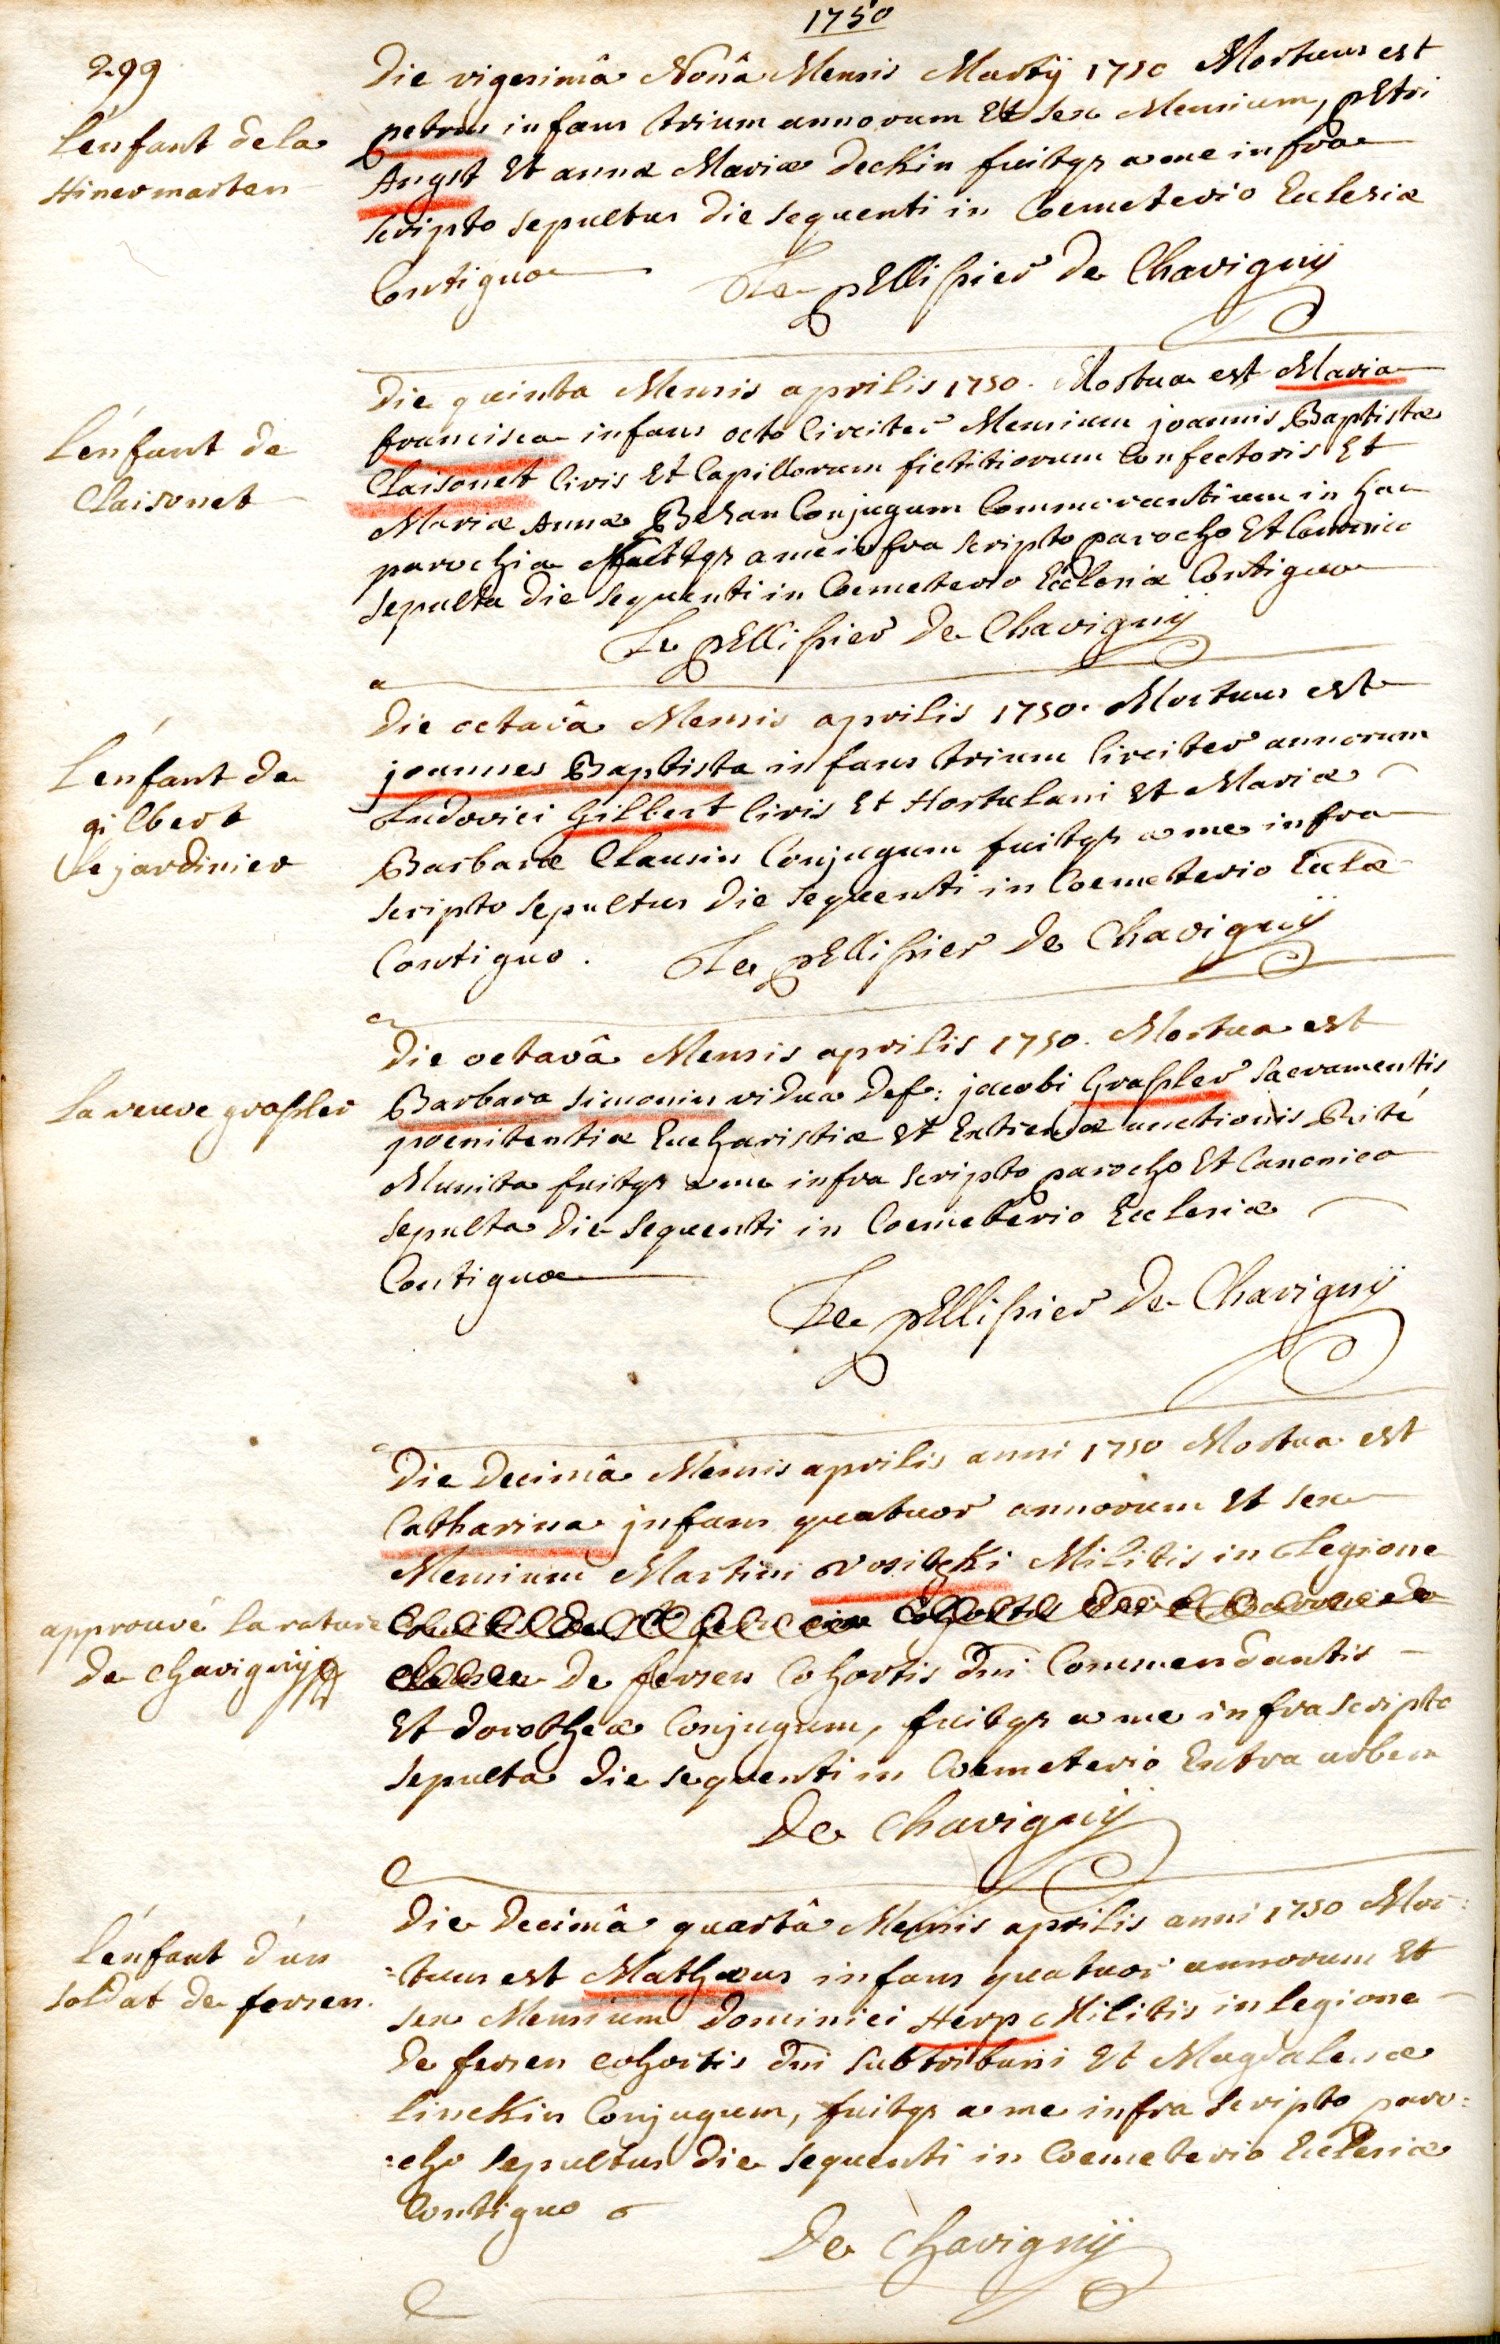 1750
299
L'enfant de la
Hinermarten
Die vigesimâ Nonâ Mensis Martij 1750 Mortuus est
petrus infans trium annorum Et sex Mensium, pEtri
Angst Et annæ Mariæ Deckin fuitqz a me infra
scripto sepultus die sequenti in Coemeterio Ecclesiæ
Contiguo
Le pEllissier De Chavignÿ
L'enfant de
Claisonet
Die quinta Mensis aprilis 1750. Mortua est Maria
francisca infans octo Circiter Mensium joannis Baptistæ
Claisonet Civis Et Capillorum fictitiorum Confectoris Et
Mariæ Annæ Bezan Conjugum Commorantium in hac
parochia fuitqz a me infra scripto parocho Et Canonico
sepulta die sequenti in Coemeterio Ecclesiæ Contiguo
Le pEllissier De Chavignÿ
L'enfant de
gilbert
le jardinier
Die octavâ Mensis aprilis 1750. Mortuus est
joannes Baptista infans trium Circiter annorum
Ludovici Gilbert Civis Et Hortulani Et Mariæ
Barbaræ Clausin Conjugum fuitqz a me infra
scripto sepultus die sequenti in Coemeterio Ecclæ
Contiguo.
Le pEllissier De Chavignÿ
La veuve grassler
Die octavâ Mensis aprilis 1750. Mortua est
Barbara simonin vidua def: jacobi Grassler sacramentis
poenitentiæ Eucharistiæ Et Extremæ unctionis Rité
Munita fuitqz a me infra scripto parocho Et Canonico
sepulta die sequenti in Coemeterio Ecclesiæ
Contiguo
Le pEllissier De Chavignÿ
Die Decimâ Mensis aprilis anni 1750 Mortua est
Catharina jnfans quatuor annorum Et sex
Mensium Martini Militis in Legione
approuvé la rature
de chavignÿ
De fersen Cohortis dni Commendantis
Et dorotheæ Conjugum, fuitqz a me infra scripto
sepulta die sequenti in Coemeterio Extra urbem
De Chavignÿ
L'enfant d'un
soldat de fersen.
Die Decimâ quartâ Mensis aprilis anni 1750 Mor:
:tuus est Mathæus infans quatuor annorum Et
sex Mensium Dominici Herp Militis in legione
De fersen cohortis dni subtribuni Et Magdalenæ
linckin Conjugum, fuitqz a me infra scripto paro:
:cho sepultus die sequenti in Coemeterio Ecclesiæ
Contiguo
De Chavignÿ